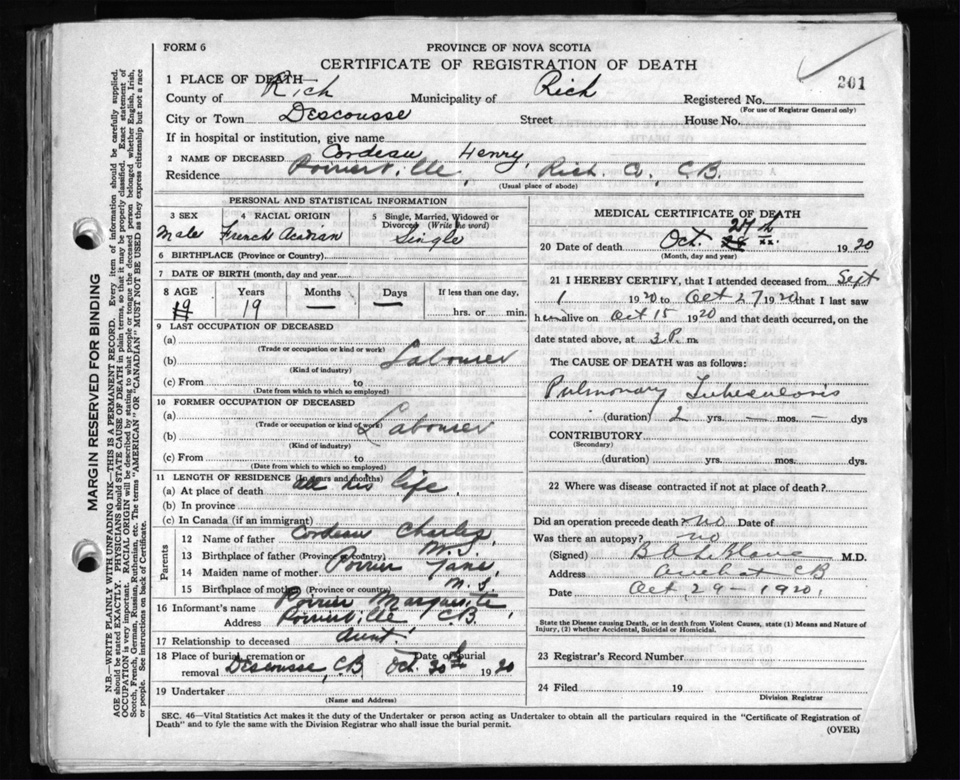 FORM 6
PROVINCE OF NOVA SCOTIA
CERTIFICATE OF REGISTRATION OF DEATH
201
1 PLACE OF DEATH
County of Rich Municipality of Rich Registered No.
(For use of Registrar General only)
City or Town Descousse Street House No.
If in hospital or institution, give name
2 NAME OF DECEASED Cordeau Henry,
Residence Poirierville, Rich. Co., C.B.
(Usual place of abode)
PERSONAL AND STATISTICAL INFORMATION
3 SEX 4 RACIAL ORIGIN 5 Single, Married, Widowed or Divorced (Write the word)
Male French Acadian Single
6 BIRTHPLACE (Province or Country)
7 DATE OF BIRTH (month, day and year)
8 AGE Years Months Days If less than one day,
19 19 — — hrs. or min.
9 LAST OCCUPATION OF DECEASED
(a)
(Trade or occupation or kind or work)
(b) Labourer
(Kind of industry)
(c) From to
(Date from which to which so employed)
10 FORMER OCCUPATION OF DECEASED
(a)
(Trade or occupation or kind of work)
(b) Labourer
(Kind of industry)
(c) From to
(Date from which to which so employed)
11 LENGTH OF RESIDENCE (In years and months)
(a) At place of death all his life
(b) In province
(c) In Canada (if an immigrant)
Parents
12 Name of father Cordeau Charles,
13 Birthplace of father (Province or country) N.S.
14 Maiden name of mother Poirier Jane,
15 Birthplace of mother (Province or country) N.S.
16 Informant's name Poirier Marguerite
Address Poirierville C.B.
17 Relationship to deceased Aunt.
18 Place of burial, cremation or removal Descousse, C.B. Date of burial Oct. 30th 1920
19 Undertaker
(Name and Address)
MEDICAL CERTIFICATE OF DEATH
20 Date of death Oct. 27th 1920
(Month, day and year)
21 I HEREBY CERTIFY, that I attended deceased from Sept
1 1920 to Oct 27 1920 that I last saw
him alive on Oct 15 1920 and that death occurred, on the
date stated above, at 3 P. m.
The CAUSE OF DEATH was as follows:
Pulmonary Tuberculosis
(duration) 2 yrs. — mos. — dys
CONTRIBUTORY
(Secondary)
(duration) yrs. mos. dys.
22 Where was disease contracted if not at place of death?
Did an operation precede death? no Date of
Was there an autopsy? no
(Signed) B A LeBlanc M.D.
Address Arichat CB
Date Oct 29 - 1920.
State the Disease causing Death, or in death from Violent Causes, state (1) Means and Nature of Injury, (2) whether Accidental, Suicidal or Homicidal.
23 Registrar's Record Number
24 Filed 19
Division Registrar
SEC. 46—Vital Statistics Act makes it the duty of the Undertaker or person acting as Undertaker to obtain all the particulars required in the "Certificate of Registration of
Death" and to fyle the same with the Division Registrar who shall issue the burial permit.
(OVER)
MARGIN RESERVED FOR BINDING
N.B.—WRITE PLAINLY WITH UNFADING INK—THIS IS A PERMANENT RECORD. Every item of information should be carefully supplied.
AGE should be stated EXACTLY. PHYSICIANS should STATE CAUSE OF DEATH in plain terms, so that it may be properly classified. Exact statement of
OCCUPATION is very important. RACIAL ORIGIN will be described by stating to what people or tongue the deceased person belonged whether English, Irish,
Scotch, French, German, Russian, Ruthenian, etc. The terms "AMERICAN" OR "CANADIAN" MUST NOT BE USED as they express citizenship but not a race
or people. See instructions on back of Certificate.